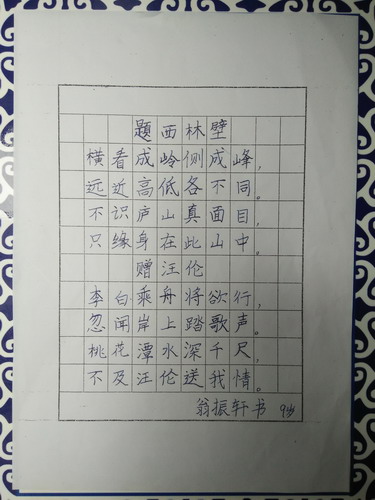 题西林壁
横看成岭侧成峰，
远近高低各不同。
不识庐山真面目，
只缘身在此山中。
赠汪伦
李白乘舟将欲行，
忽闻岸上踏歌声。
桃花潭水深千尺，
不及汪伦送我情。
翁振轩书 9岁